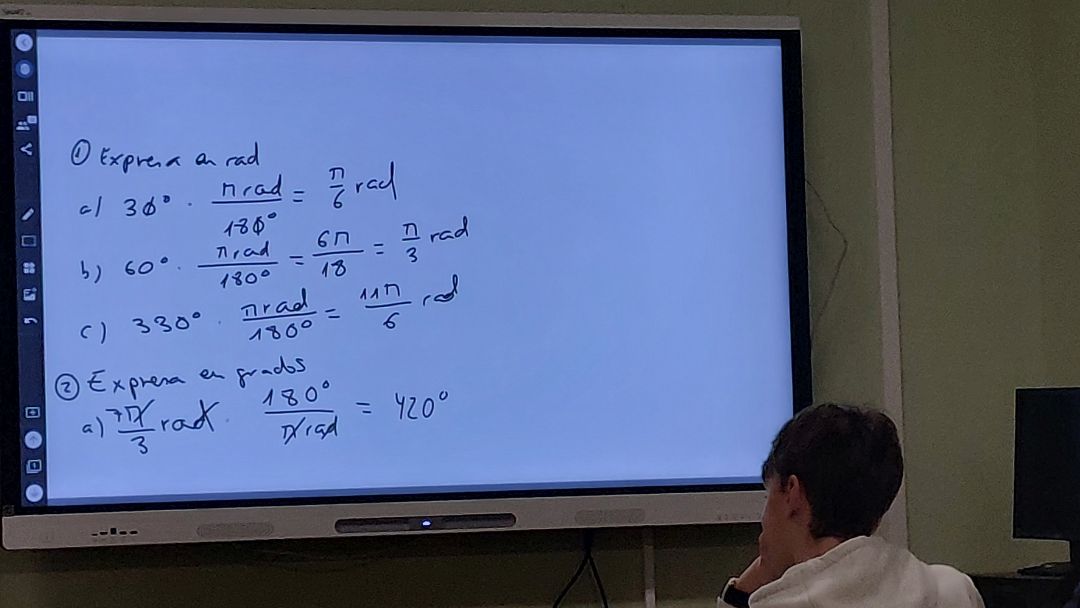 ① Expresa en rad
a) 30° · π rad / 180° = π/6 rad
b) 60° · π rad / 180° = 6π/18 = π/3 rad
c) 330° · π rad / 180° = 11π/6 rad
② Expresa en grados
a) 7π/3 rad · 180° / π rad = 420°